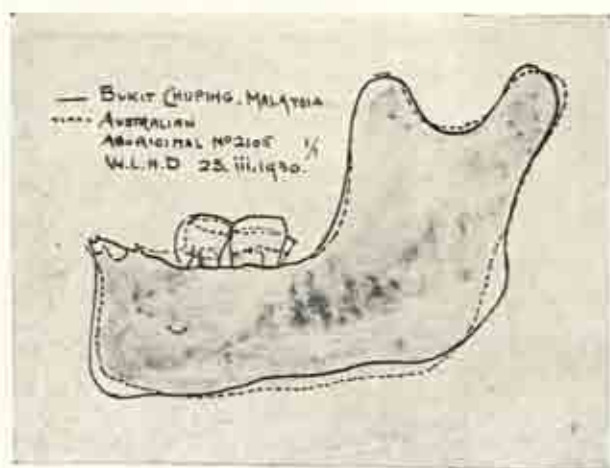 — BUKIT CHUPING. MALAYSIA
---- AUSTRALIAN
ABORIGINAL Nº 2105 1/1
W.L.H.D 23. iii. 1930.